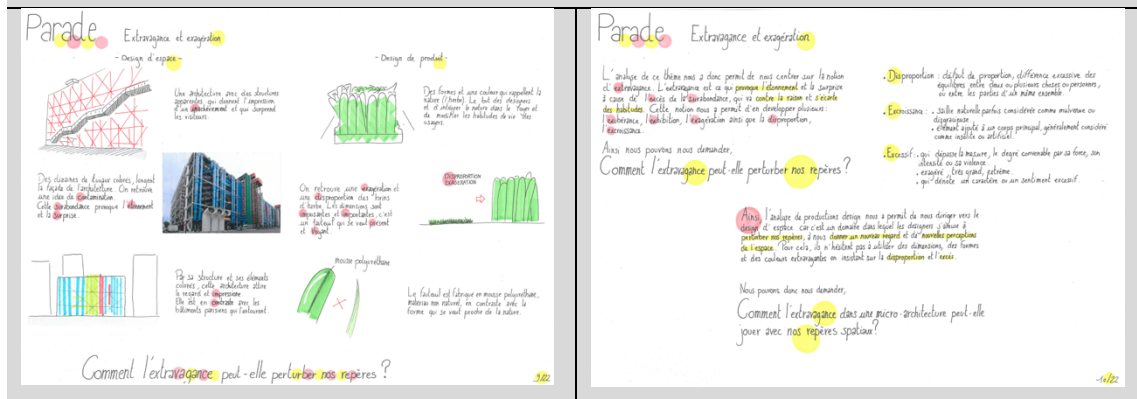 Parade Extravagance et exagération
- Design d'espace -
Une architecture avec des structures
apparentes qui donnent l'impression
d'un inachèvement et qui surprend
les visiteurs.
Des dizaines de tuyaux colorés, longent
la façade de l'architecture. On retrouve
une idée de contamination.
Cette surabondance provoque l'étonnement
et la surprise.
Par sa structure et ses éléments
colorés, cette architecture attire
le regard et impressionne.
Elle est en contraste avec les
bâtiments parisiens qui l'entourent.
- Design de produit -
Des formes et une couleur qui rappellent la
nature (l'herbe). Le but des designers
est d'intégrer la nature dans le
et de modifier les habitudes de vie des
usagers.
On retrouve une exagération et
une disproportion des brins
d'herbe. Les dimensions sont
imposantes et importantes, c'est
un fauteuil qui se veut présent
et
DISPROPORTION
EXAGERATION
mousse polyuréthane
Le fauteuil est fabriqué en mousse polyuréthane,
matériau non naturel, en contraste avec la
forme qui se veut proche de la nature.
Comment l'extravagance peut-elle perturber nos repères ?
9/22
Parade Extravagance et exagération
L'analyse de ce thème nous a donc permit de nous centrer sur la notion
d'extravagance. L'extravagance est ce qui provoque l'étonnement et la surprise
à cause de l'excès de la surabondance, qui va contre la raison et s'écarte
des habitudes. Cette notion nous a permit d'en développer plusieurs:
l'exubérance, l'exhibition, l'exagération ainsi que la disproportion,
l'excroissance.
Ainsi nous pouvons nous demander,
Comment l'extravagance peut-elle perturber nos repères ?
. Disproportion : défaut de proportion, différence excessive des
équilibres entre deux ou plusieurs choses ou personnes,
ou entre les parties d'un même ensemble.
. Excroissance : . saillie naturelle parfois considérée comme malvenue ou
disgracieuse.
. élément ajouté à un corps principal, généralement considéré
comme insolite ou artificiel.
. Excessif . qui dépasse la mesure, le degré convenable par sa force, son
intensité ou sa violence.
. exagéré, très grand, extrême.
. qui dénote un caractère ou un sentiment excessif.
Ainsi, l'analyse de productions design nous a permit de nous diriger vers le
design d'espace car c'est un domaine dans lequel les designers s'amuse à
perturber nos repères, à nous donner un nouveau regard et de nouvelles perceptions
de l'espace. Pour cela, ils n'hésitent pas à utiliser des dimensions, des formes
et des couleurs extravagantes en insistant sur la disproportion et l'excès.
Nous pouvons donc nous demander,
Comment l'extravagance dans une micro-architecture peut-elle
jouer avec nos repères spatiaux?
10/22